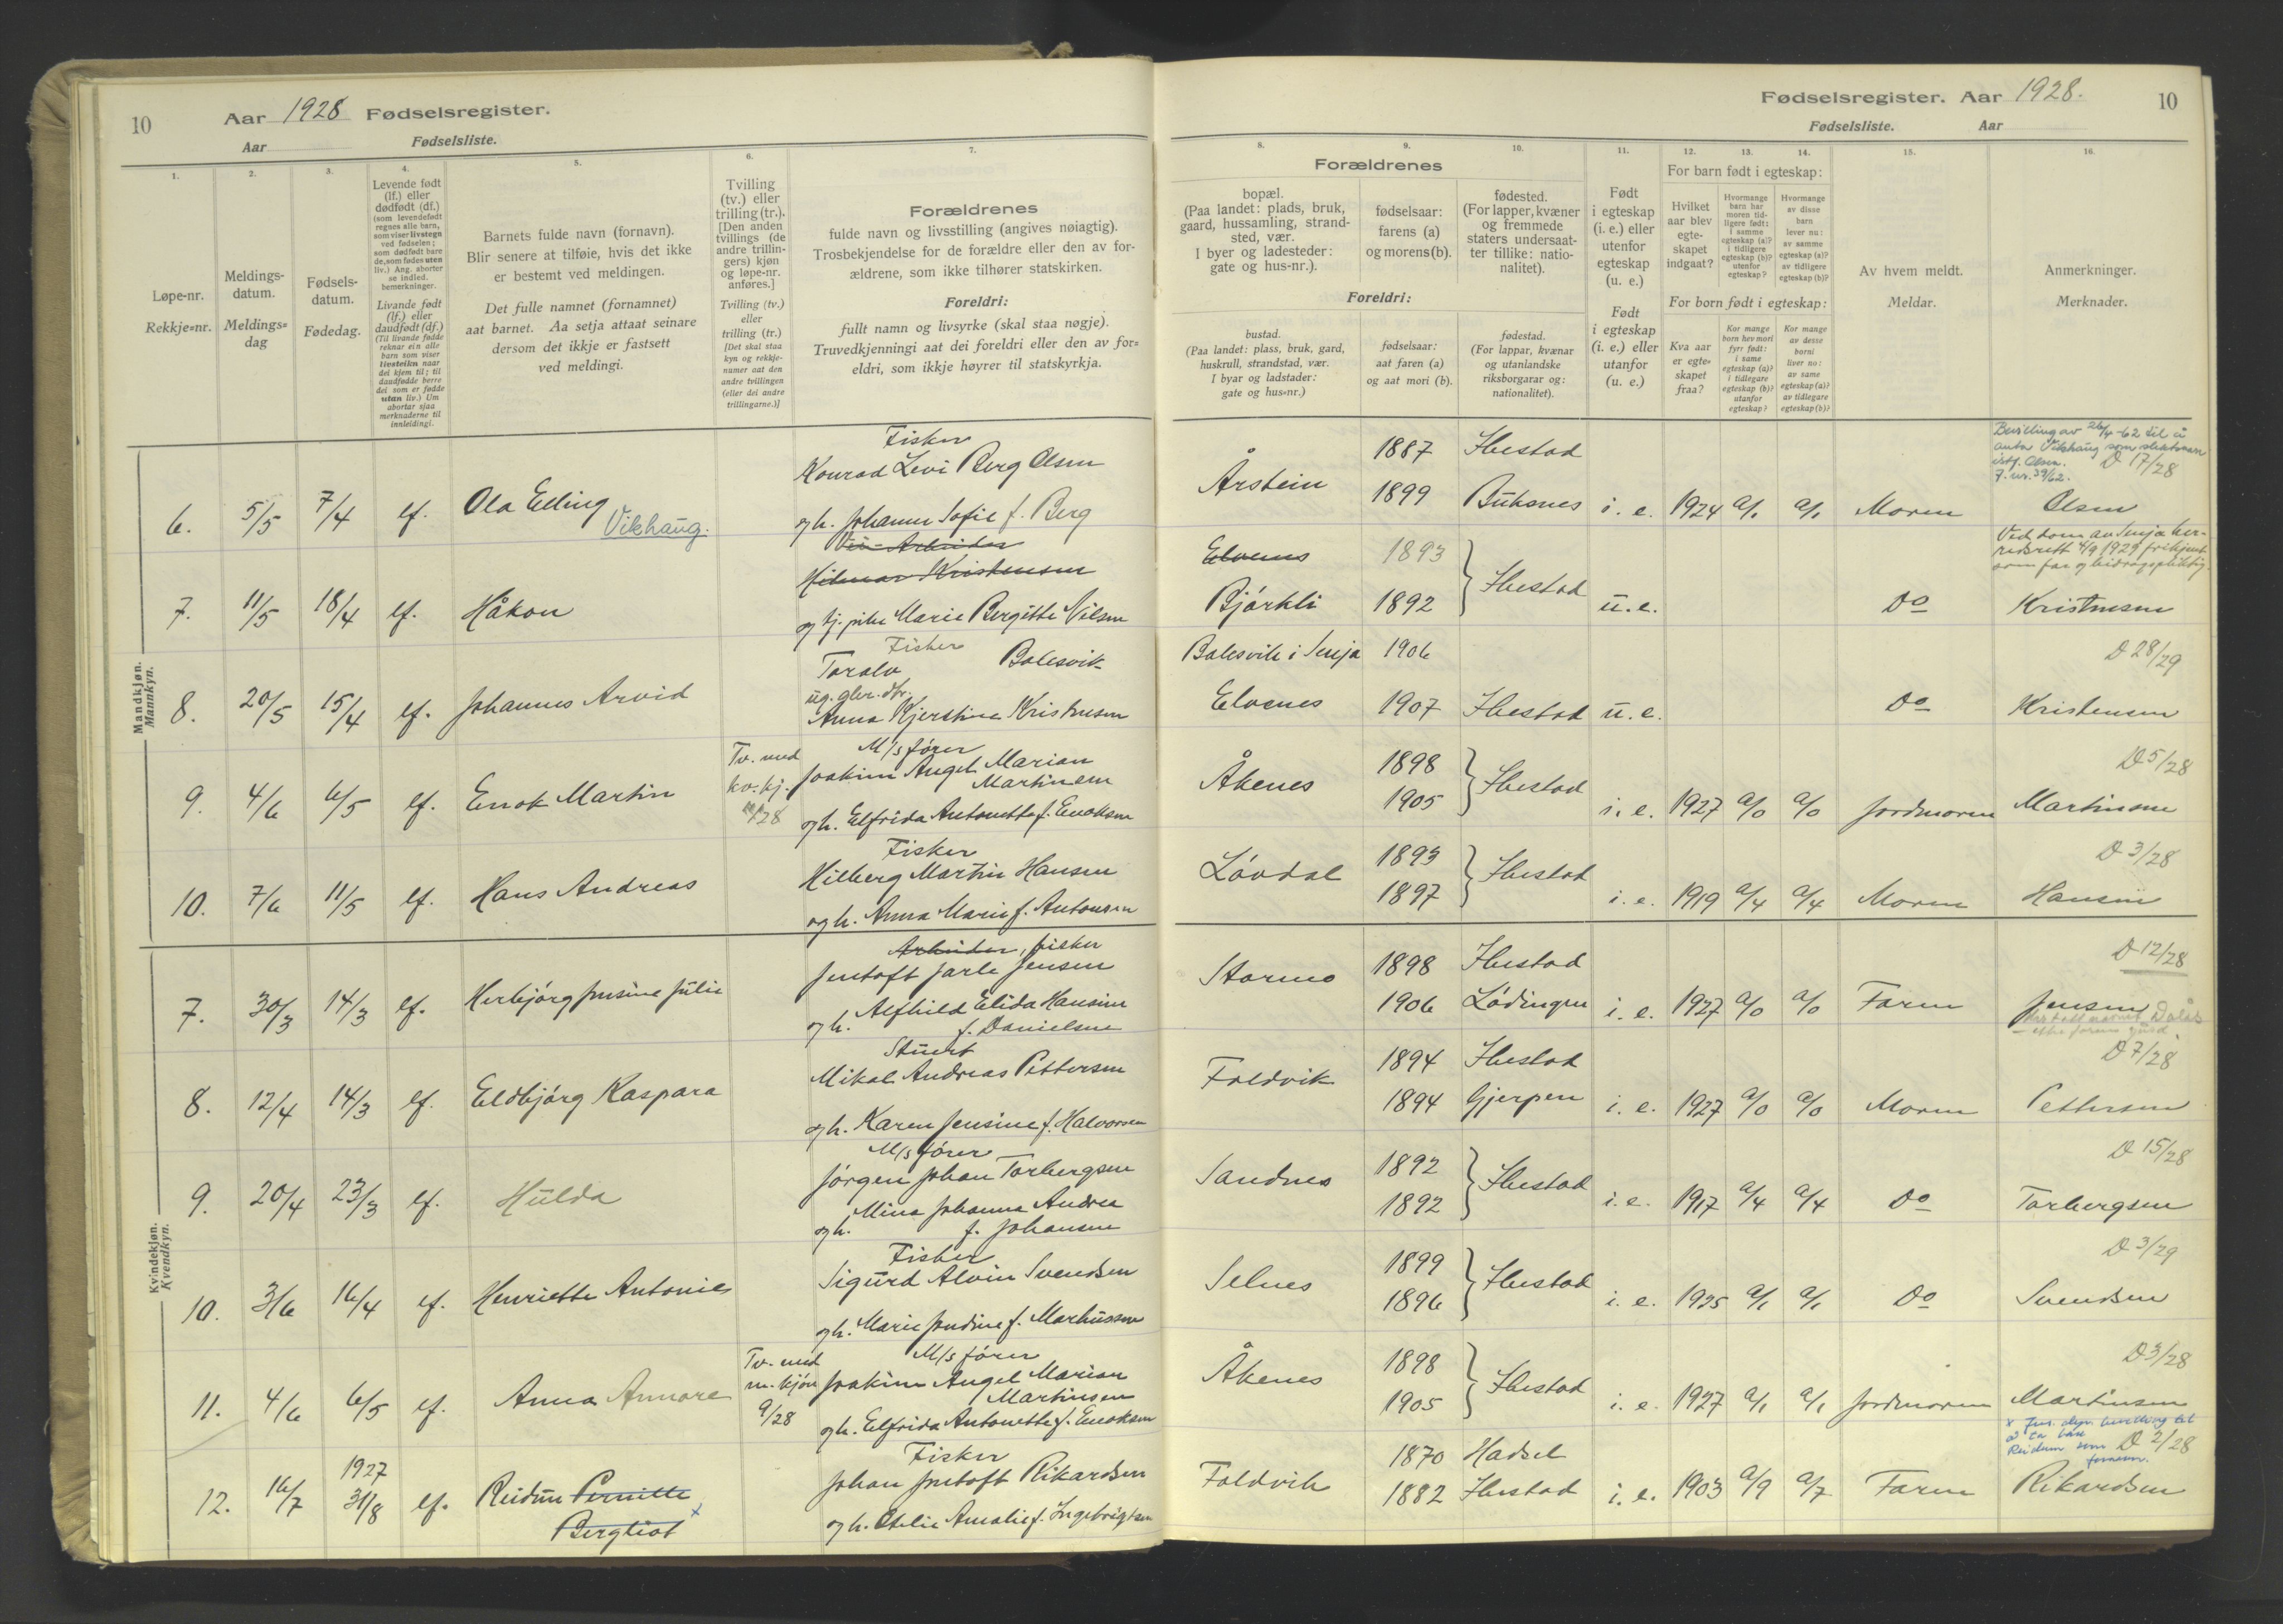 10
Aar 1928 Fødselsregister.
Aar Fødselsliste.
1.
2.
3.
4.
5.
6.
7.
Løpe-nr.
Rekkje=nr.
Meldings-
datum.
Meldings=
dag
Fødsels-
datum.
Fødedag.
Levende født
(lf.) eller
dødfødt (df.)
(som levendefødt
regnes alle barn,
som viser livstegn
ved fødselen;
som dødfødt bare
de, som fødes uten
liv.) Ang. aborter
se indled.
bemerkninger.
Livande født
(lf.) eller
daudfødt (df.)
(Til livande fødde
reknar ein alle
barn som viser
livsteikn naar
dei kjem til; til
daudfødde berre
dei som er fødde
utan liv.) Um
abortar sjaa
merknaderne til
innleidingi.
Barnets fulde navn (fornavn).
Blir senere at tilføie, hvis det ikke
er bestemt ved meldingen.
Det fulle namnet (fornamnet)
aat barnet. Aa setja attaat seinare
dersom det ikkje er fastsett
ved meldingi.
Tvilling
(tv.) eller
trilling (tr.).
[Den anden
tvillings (de
andre trillin-
gers) kjøn
og løpe-nr.
anføres.]
Tvilling (tv.)
eller
trilling (tr.)
[Det skal staa
kyn og rekkje-
numer aat den
andre tvillingen
(eller dei andre
trillingarne.)]
Forældrenes
fulde navn og livsstilling (angives nøiagtig).
Trosbekjendelse for de forældre eller den av for-
ældrene, som ikke tilhører statskirken.
Foreldri:
fullt namn og livsyrke (skal staa nøgje).
Truvedkjenningi aat dei foreldri eller den av for=
eldri, som ikkje høyrer til statskyrkja.
Mandkjøn.
Mannkyn.
Fisker
Konrad Levi Berg Olsen
6. 5/5 7/4 lf. Ola Elling Vikhaug. og h. Johanne Sofie f. Berg
Vei-Arbeider
Hilmar Kristensen
7. 11/5 18/4 lf. Håkon og tj. pike Marie Bergitte Nilsen
Fisker
Toralv Balesvik
ug. gbr. dtr.
8. 20/5 15/4 lf. Johannes Arvid Anna Kjerstine Kristensen
Tv. med M/s fører
kv. kj. Joakim Angel Marian
Martinsen
9. 4/6 6/5 lf. Enok Martin 11/28 og h. Elfrida Antonette f. Enoksen
Fisker
Hilberg Martin Hansen
10. 7/6 11/5 lf. Hans Andreas og h. Anna Marie f. Antonsen
Kvindekjøn.
Kvendkyn.
Arbeider, fisker
Jentoft Jarle Jensen
7. 30/3 14/3 lf. Herbjørg Jensine Julie og h. Alfhild Elida Hansine
f. Danielsen
Stuert
Mikal Andreas Pettersen
8. 12/4 14/3 lf. Eldbjørg Kaspara og h. Karen Jensine f. Halvorsen
M/s fører
Jørgen Johan Torbergsen
9. 20/4 23/3 lf. Hulda og h. Mina Johanna Andrea
f. Johansen
Fisker
Sigurd Alvin Svendsen
10. 3/6 16/4 lf. Henriette Antonie og h. Marie Jondine f. Markussen
Tv. med M/s fører
m. kjøn Joakim Angel Marian
Martinsen
11. 4/6 6/5 lf. Anna Annore 9/28 og h. Elfrida Antonette f. Enoksen
Fisker
1927 Johan Jentoft Rikardsen
12. 16/7 31/8 lf. Reidun Pernille
Bergliot x og h. Otelie Amalie f. Ingebrigtsen
Fødselsregister. Aar 1928. 10
Fødselsliste. Aar
8.
9.
10.
11.
12.
13.
14.
15.
16.
Forældrenes
bopæl.
(Paa landet: plads, bruk,
gaard, hussamling, strand-
sted, vær.
I byer og ladesteder:
gate og hus-nr.).
fødselsaar:
farens (a)
og morens (b).
fødested.
(For lapper, kvæner
og fremmede
staters undersaat-
ter tillike: natio-
nalitet).
Foreldri:
bustad.
(Paa landet: plass, bruk, gard,
huskrull, strandstad, vær.
I byar og ladstader:
gate og hus=nr.)
fødselsaar:
aat faren (a)
og aat mori (b).
fødestad.
(For lappar, kvænar
og utanlandske
riksborgarar og:
nationalitet).
Født
i egteskap
(i. e.) eller
utenfor
egteskap
(u. e.)
Født
i egteskap
(i. e.) eller
utanfor
(u. e.)
For barn født i egteskap:
Hvilket
aar blev
egte-
skapet
indgaat?
Hvormange
barn har
moren tid-
ligere født:
i samme
egteskap (a)?
i tidligere
egteskap (b)?
utenfor
egteskap?
Hvormange
av disse
barn
lever nu:
av samme
egteskap (a)?
av tidligere
egteskap (b)?
For born født i egteskap:
Kva aar
er egte=
skapet
fraa?
Kor mange
born hev mori
fyrr født:
i same
egteskap (a)?
i tidlegare
egteskap (b)?
utanfor
egteskap?
Kor mange
av desse
borni
liver no:
av same
egteskap (a)?
av tidlegare
egteskap (b)?
Av hvem meldt.
Meldar.
Anmerkninger.
Merknader.
Bevilling av 26/4-62 til å
anta Vikhaug som slektsnavn
istf. Olsen. D 17/28
J. nr. 39/62.
1887 Ibestad
Årstein 1899 Buksnes i. e. 1924 a/1 a/1 Moren Olsen
Ved dom av Senja her-
redsrett 4/9 1929 frikjent
som far og bidragspliktig.
Elvenes 1893
Bjørkli 1892 } Ibestad u. e. Do Kristensen
Balesvik i Senja 1906 D 28/29
Elvenes 1907 Ibestad u. e. Do Kristensen
1898 D 5/28
Åkenes 1905 } Ibestad i. e. 1927 a/0 a/0 Jordmoren Martinsen
1893 D 3/28
Løvdal 1897 } Ibestad i. e. 1919 a/4 a/4 Moren Hansen
1898 Ibestad D 12/28
Stormo 1906 Lødingen i. e. 1927 a/0 a/0 Faren Jensen
1894 Ibestad D 7/28
Foldvik 1894 Gjerpen i. e. 1927 a/0 a/0 Moren Pettersen
1892 D 15/28
Sandnes 1892 } Ibestad i. e. 1917 a/4 a/4 Do Torbergsen
1899 D 3/29
Selnes 1896 } Ibestad i. e. 1925 a/1 a/1 Do Svendsen
1898 D 3/28
Åkenes 1905 } Ibestad i. e. 1927 a/1 a/1 Jordmoren Martinsen
x Jus. dep. bevilling til
å ta bare
Reidun som D 2/28
fornavn.
1870 Hadsel
Foldvik 1882 Ibestad i. e. 1903 a/9 a/7 Faren Rikardsen